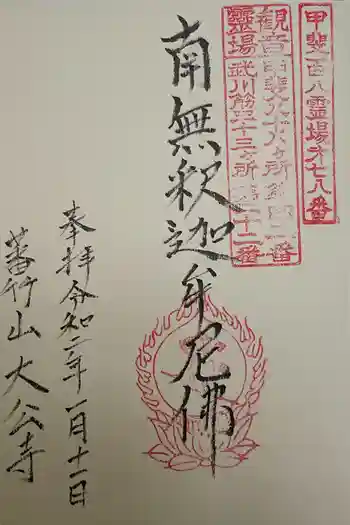 甲斐百八霊場第七八番
観音甲斐八十八ヶ所第四二番
霊場武川筋三十三ヶ所第二十二番
南無釈迦牟尼佛
奉拝令和二年一月十一日
蕃竹山大公寺